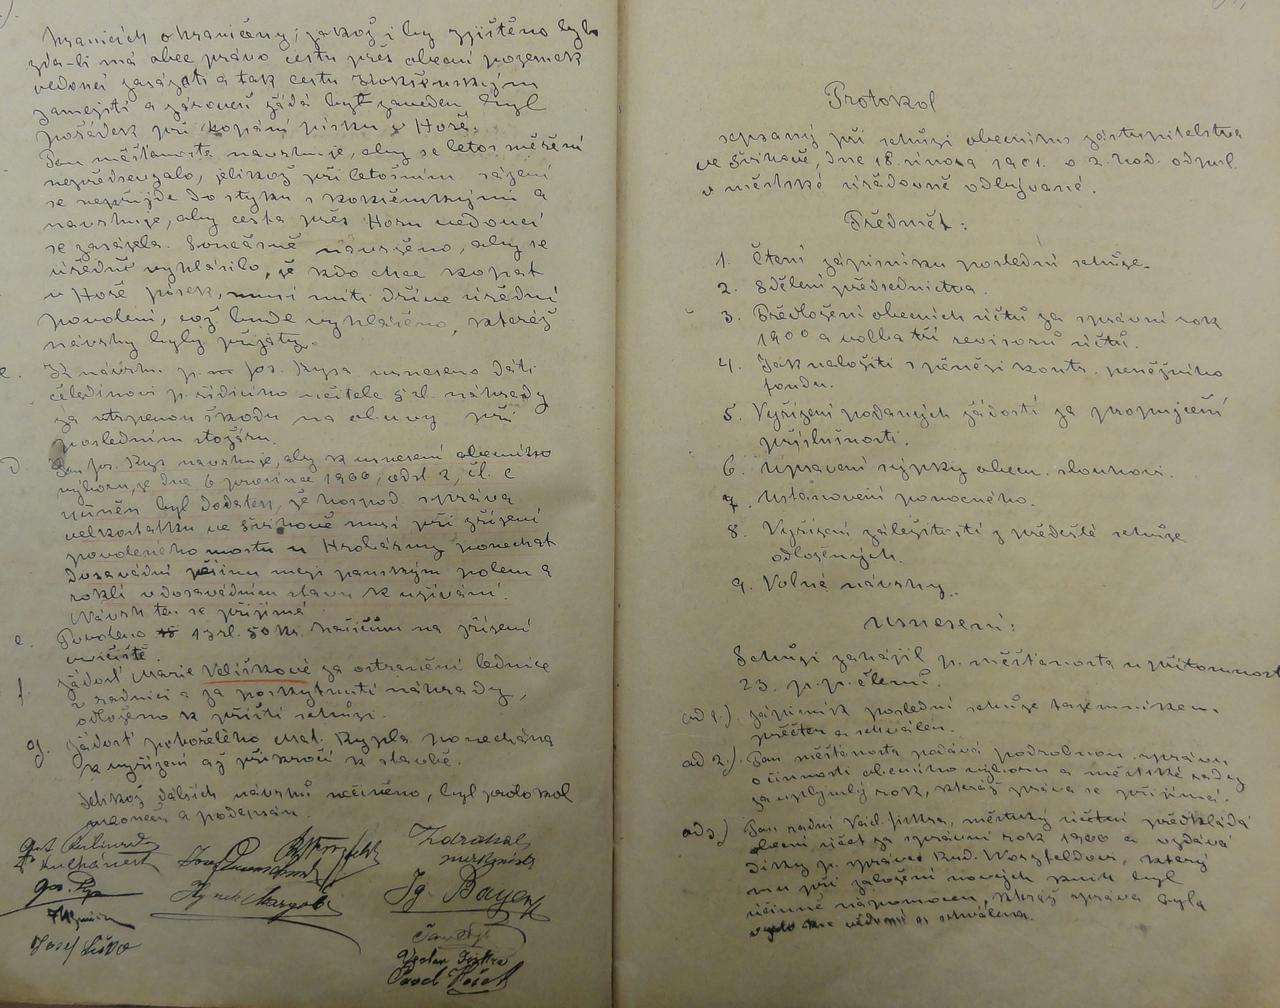 hranicích ohraničeny; jakož i by zjištěno bylo
zda-li má obec právo cestu přes obecní pozemek
vedoucí zasázeti a tak cestu
zameziti a zároveň žádá byl zaveden byl
pořádek při kopání písku v Hoře.
Pan měšťanosta navrhuje, aby se letos měření
nepředsevzalo, jelikož při letošním sázení
se nepřijde do styku s
navrhuje, aby cesta přes Horu vedoucí
se zasázela. Současně navrženo, aby se
úředně vyhlásilo, že kdo chce kopat
v Hoře písek, musí míti dříve úřední
povolení, což bude vyhlášeno, kteréž
návrhy byly přijaty.
c. K návrhu p. Jos. Rysa usneseno dáti
čeledínovi p. řídícího učitele 5 zl. náhrady
za utrpenou škodu na obuvy při
posledním
d. Pan Jos. Rys navrhuje, aby k usnesení obecního
výboru, ze dne 6 prosince 1900, odst. 2, čl. c
učiněn byl dodatek, že hospod. správa
velkostatku ve musí při zřízení
povoleného mostu u ponechat
dosavádní pěšinu mezi panským polem a
roklí v dosavádním stavu k užívání.
Návrh ten se přijímá.
e. Povoleno 13 zl. 50 kr. hasičům na zřízení
cvičiště.
f. Žádost Marie Velíškové za ostranění lednice
z radnici a za poskytnutí náhrady,
odloženo k příští schůzi.
g. Žádost pohořelého Mat. Rypla ponechána
k vyřízení až přikročí k stavbě.
Jelikož dalších návrhů nečiněno, byl protokol
skončen a podepsán.
Zdrahal
Jos. Rys
Hynek
Ig. Bayer
Josef
Václav Jiskra
Pavel
Protokol
sepsaný při schůzi obecního zastupitelstva
ve dne 18. února 1901. o 2. hod. odpol.
v městské úřadovně odbývané.
Předmět:
1. Čtení zápisníku poslední schůze.
2. Sdělení předsednictva.
3. Předložení obecních účtů za správní rok
1900 a volba tří revisorů účtů.
4. Jak naložiti s penězi kont. peněžního
fondu.
5. Vyřízení podaných žádostí za propůjčení
příslušnosti.
6. Upravení sýpky obecn. slouhovi.
7. Ustanovení pomocného.
8. Vyřízení záležitostí z předešlé schůze
odložených.
9. Volné návrhy.
Usnesení:
Schůzi zahájil p. měšťanosta u přítomnosti
23. p. p. členů.
ad 1.) Zápisník poslední schůze tajemníkem
přečten a schválen.
ad 2.) Pan měšťanosta podává podrobnou zprávu
o činnosti obecního výboru a městské rady
za uplynulý rok, kteráž zpráva se přijímá.
ad 3.) Pan radní Václ. Jiskra, městský účetní předkládá
obecní účet za správní rok 1900 a vzdává
díky p. správci Rud. který
mu při založení nových knih byl
účinně nápomocen, kteráž zpráva byla
vzata na vědomí a schválena.